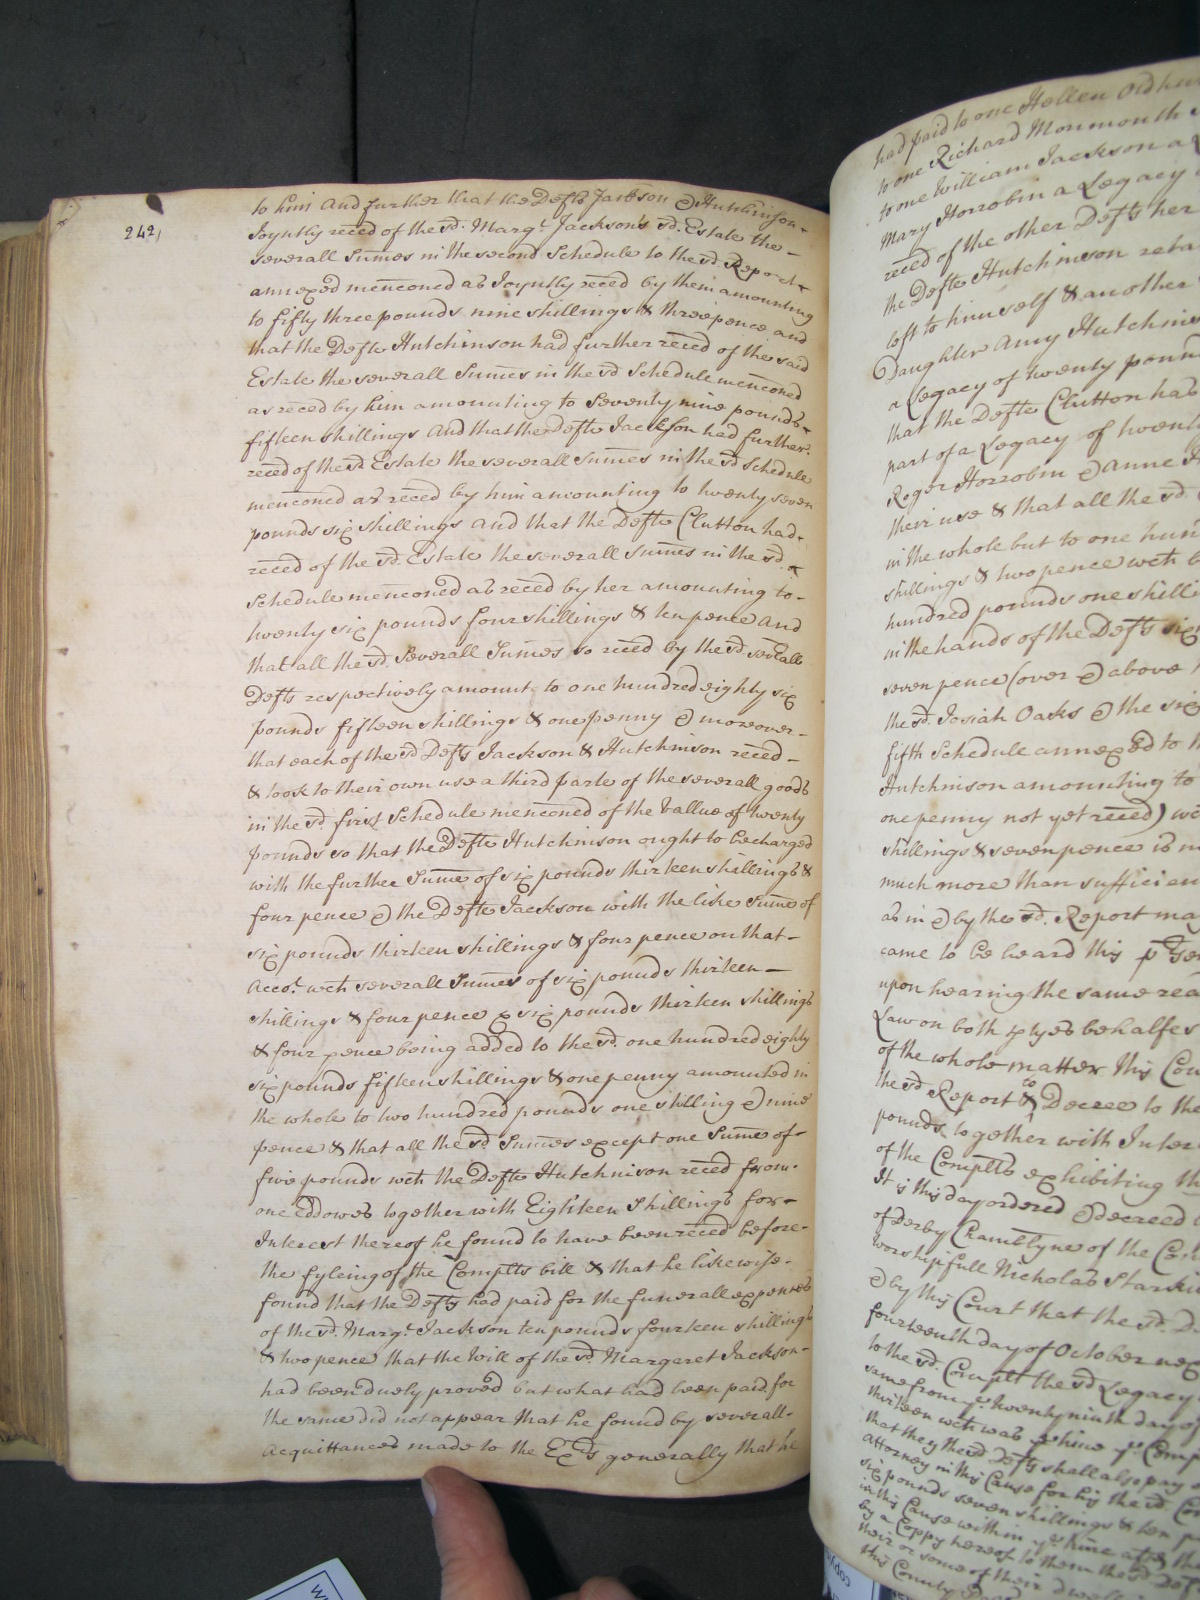 242
to him And further that the Defts Jackson & Hutchinson
Joyntly reced of the sd. Margt. Jackson's sd. Estate the
severall Sumes in the second Schedule to the sd. Report
annexed menconed as Joyntly reced by them amounting
to fifty three pounds nine shillings & threepence and
that the Defte Hutchinson had further reced of the said
Estate the severall Sumes in the sd Schedule menconed
as reced by him amounting to Seventy nine pounds
fifteen shillings And that the Defte Jackson had further
reced of the sd Estate the severall Sumes in the sd Schedule
menconed as reced by him amounting to twenty seven
pounds six shillings and that the Defte Clutton had
reced of the sd. Estate the severall Sumes in the sd.
Schedule menconed as reced by her amounting to
twenty six pounds four shillings & ten pence and
that all the sd. Severall Sumes so reced by the sd. sevrall
Defts respectively amount to one hundred eighty six
pounds fifteen shillings & one penny & moreover
that each of the sd Defts Jackson & Hutchinson reced
& took to their own use a third parte of the severall goods
in the sd. first Schedule menconed of the vallue of twenty
pounds so that the Defte Hutchinson ought to be charged
with the further Sume of six pounds thirteen shillings &
four pence & the Defte Jackson with the like Sume of
six pounds thirteen shillings & four pence on that
Accot. wch severall Sumes of six pounds thirteen
shillings & four pence & six pounds thirteen shillings
& four pence being added to the sd. one hundred eighty
six pounds fifteen shillings & one penny amounted in
the whole to two hundred pounds one shilling & nine
pence & that all the sd Sumes except one Sume of
five pounds wch the Defte Hutchinson reced from
one Eddowes together with Eighteen Shillings for
Interest thereof he found to have been reced before
the fyleing of the Complts bill & that he likewise
found that the Defts had paid for the funerall expences
of the sd. Margt. Jackson ten pounds fourteen shillings
& two pence that the Will of the sd Margaret Jackson
had been duely proved but what had been paid for
the same did not appear that he found by severall
Acquittances made to the Exrs generally that he
had paid to one Hellen
to one Richard Monmonth
to one William Jackson a
Mary Horrobin a Legacy
reced of the other Defts her
the Defte Hutchinson
left to himself & another
Daughter Amy
a Legacy of twenty
that the Defte Clutton had
part of a Legacy of
Roger Horrobin & Anne
their use & that all the sd.
in the whole but to one
shillings & two pence wch
hundred pounds one
in the hands of the Defts
seven pence (over & above
the sd. Josiah Oaks & the
fifth Schedule annexed to
Hutchinson amounting to
one penny not yet reced)
shillings & seven pence is
much more than
as in & by the sd. Report
came to be heard this
upon hearing the same
Law on both ptyes behalfes
of the whole matter this
the sd Report & to Decree to the
pounds together with
of the Complts exhibiting
It is this day ordered & decreed
of Derby Chamblyne of the
worshipfull Nicholas
& by this Court that the sd.
fourteenth day of October
to the sd. Complt the sd Legacy
same from ye twenty ninth day of
thirteen wch was ye time ye
that they the sd Defts shall also pay
Attorney in this Cause for his the sd.
six pounds seven shillings & ten
in this Cause within ye time
by a Coppy hereof to them the sd
their or some of their
this County